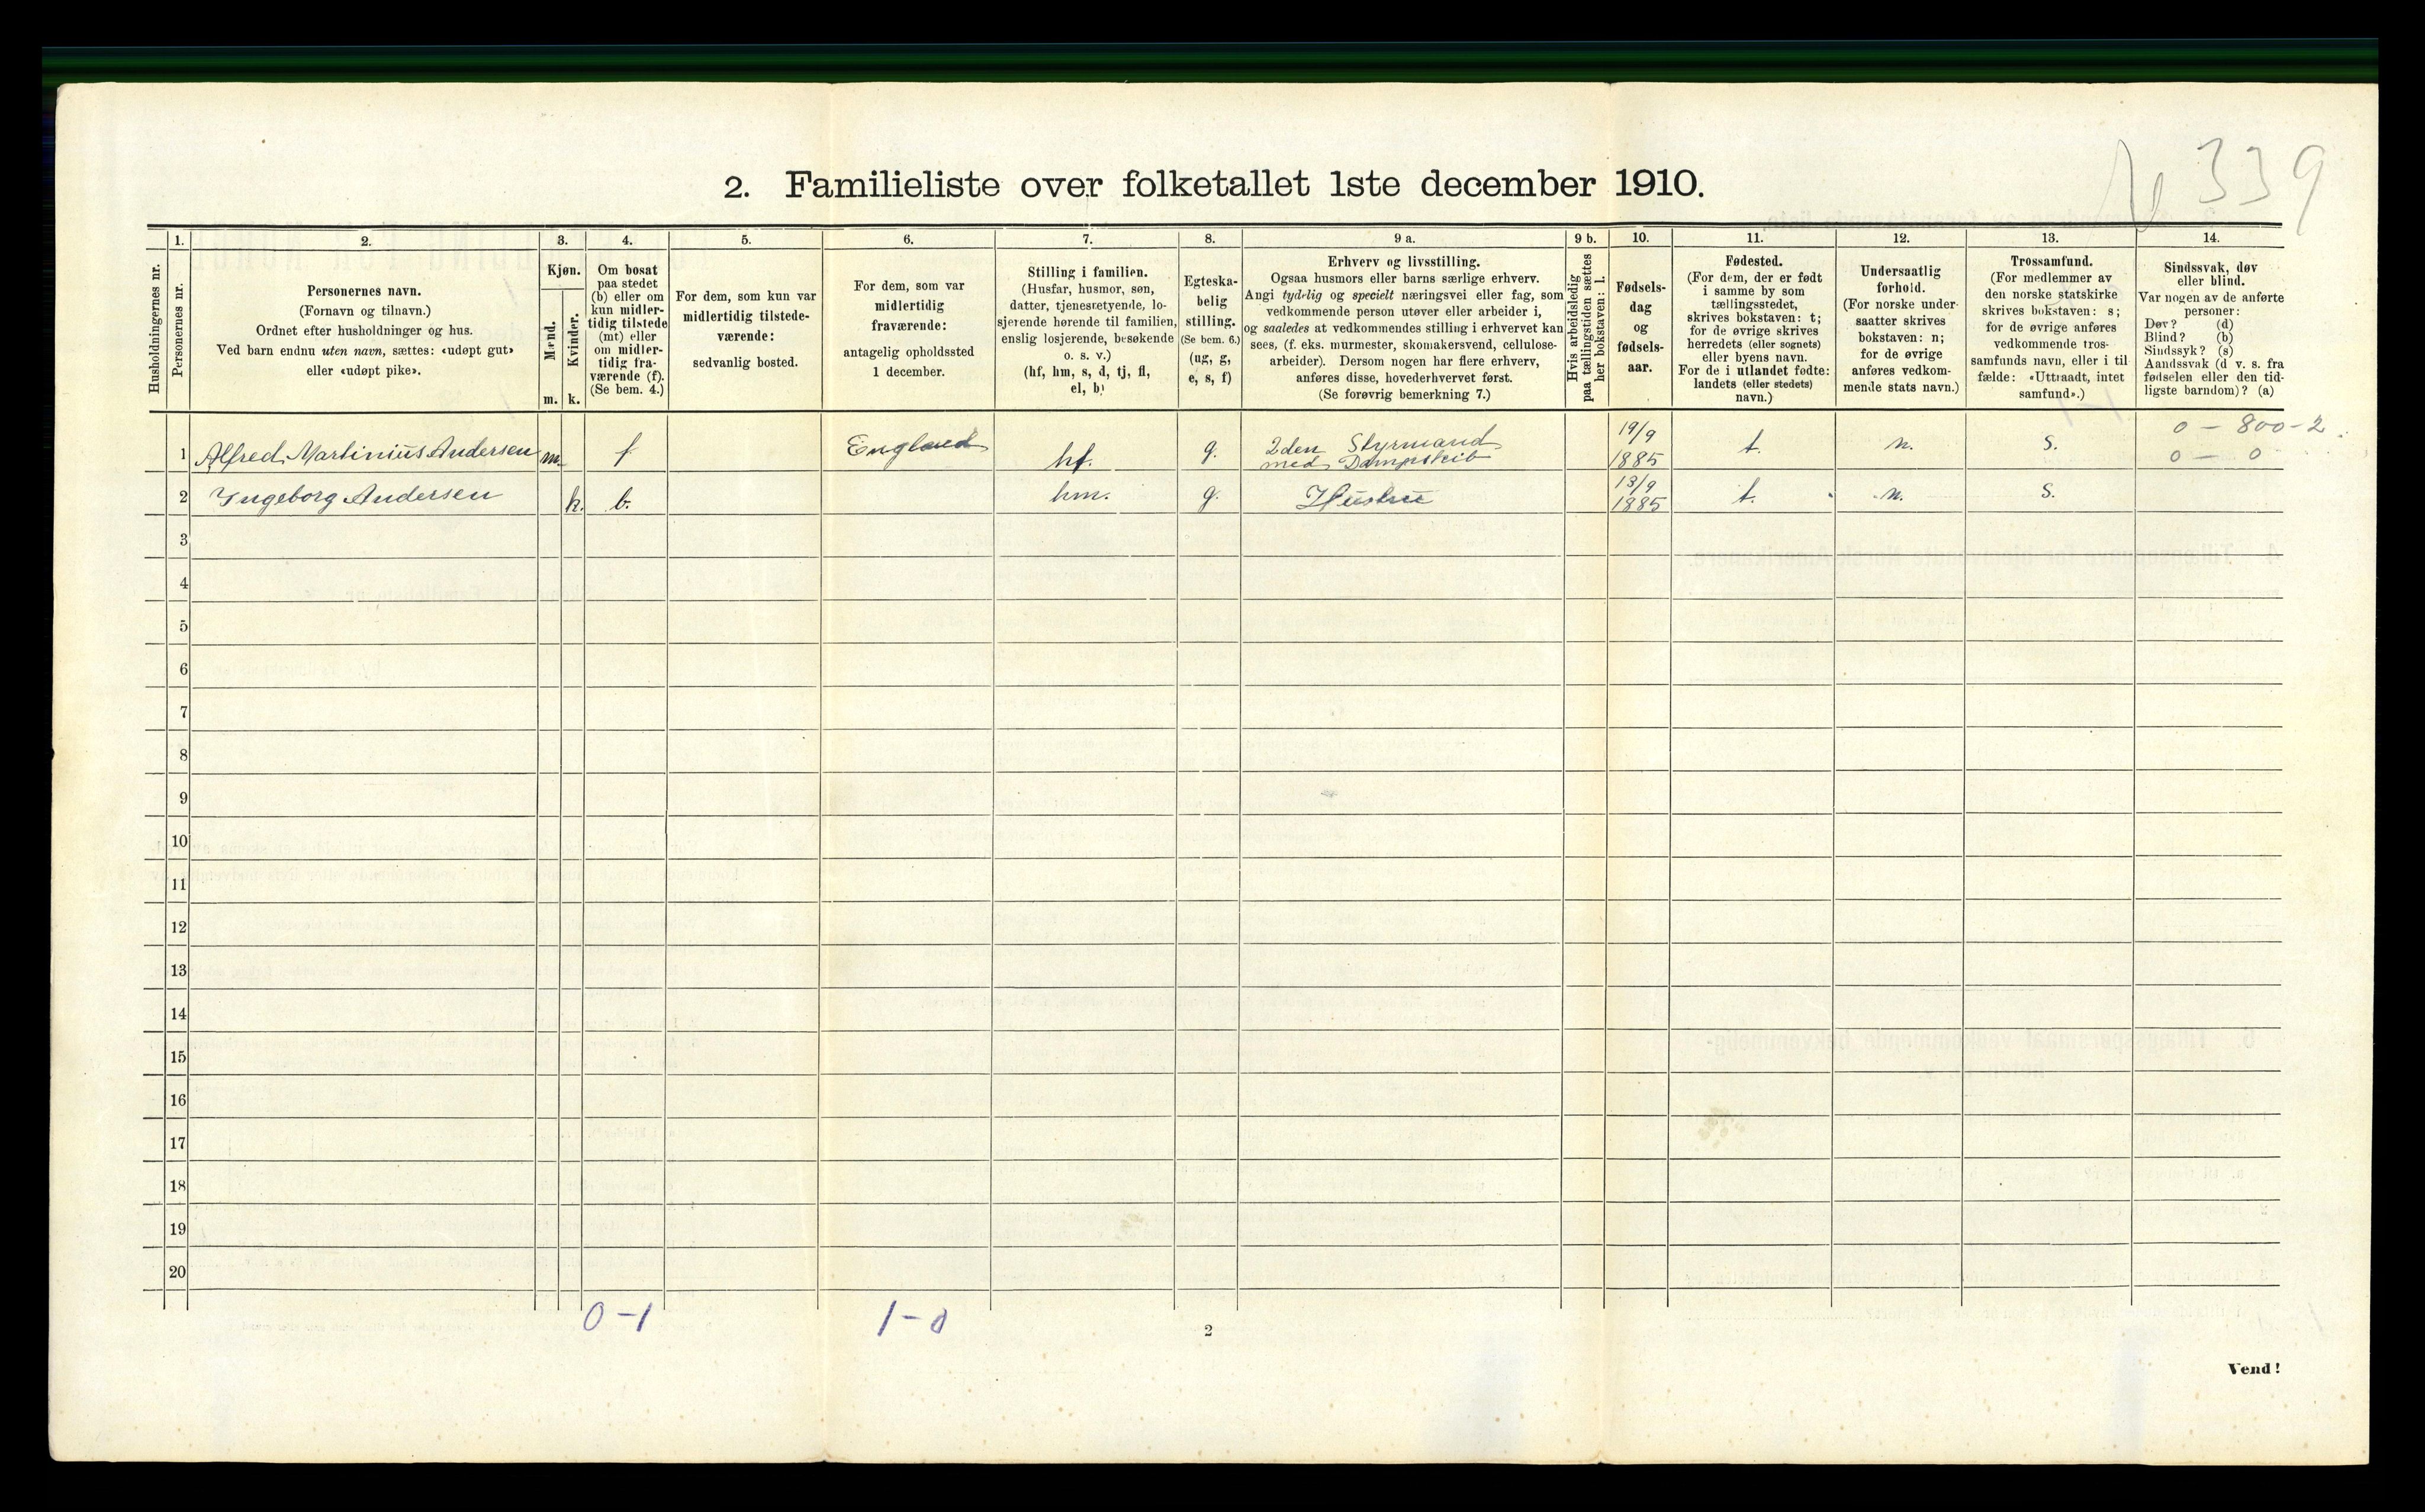 № 339
2. Familieliste over folketallet 1ste december 1910.
Husholdningernes nr.
1.
Personernes nr.
2.
Personernes navn.
(Fornavn og tilnavn.)
Ordnet efter husholdninger og hus.
Ved barn endnu uten navn, sættes: «udøpt gut»
eller «udøpt pike».
3.
Kjøn.
Mænd.
Kvinder.
m. k.
4.
Om bosat
paa stedet
(b) eller om
kun midler-
tidig tilstede
(mt) eller
om midler-
tidig fra-
værende (f).
(Se bem. 4.)
5.
For dem, som kun var
midlertidig tilstede-
værende:
sedvanlig bosted.
6.
For dem, som var
midlertidig
fraværende:
antagelig opholdssted
1 december.
7.
Stilling i familien.
(Husfar, husmor, søn,
datter, tjenestyende, lo-
sjerende hørende til familien,
enslig losjerende, besøkende
o. s. v.)
(hf, hm, s, d, tj, fl,
el, b)
8.
Egteska-
belig
stilling.
(Se bem. 6.)
(ug, g,
e, s, f)
9 a.
Erhverv og livsstilling.
Ogsaa husmors eller barns særlige erhverv.
Angi tydelig og specielt næringsvei eller fag, som
vedkommende person utøver eller arbeider i,
og saaledes at vedkommendes stilling i erhvervet kan
sees, (f. eks. murmester, skomakersvend, cellulose-
arbeider). Dersom nogen har flere erhverv,
anføres disse, hovederhvervet først.
(Se forøvrig bemerkning 7.)
9 b.
Hvis arbeidsledig
paa tællingstiden sættes
her bokstaven: l.
10.
Fødsels-
dag
og
fødsels-
aar.
11.
Fødested.
(For dem, der er født
i samme by som
tællingsstedet,
skrives bokstaven: t;
for de øvrige skrives
herredets (eller sognets)
eller byens navn.
For de i utlandet fødte:
landets (eller stedets)
navn.)
12.
Undersaatlig
forhold.
(For norske under-
saatter skrives
bokstaven: n;
for de øvrige
anføres vedkom-
mende stats navn.)
13.
Trossamfund.
(For medlemmer av
den norske statskirke
skrives bokstaven: s;
for de øvrige anføres
vedkommende tros-
samfunds navn, eller i til-
fælde: «Uttraadt, intet
samfund».)
14.
Sindssvak, døv
eller blind.
Var nogen av de anførte
personer:
Døv? (d)
Blind? (b)
Sindssyk? (s)
Aandssvak (d. v. s. fra
fødselen eller den tid-
ligste barndom)? (a)
0 - 800-2
0 - 0
1 Alfred Martinius Andersen m. f England hf. g. 2den Styrmand
med Dampskib 19/9
1885 t. n. s.
2 Ingeborg Andersen k. b. hm. g. Hustru 13/9
1885 t. n. s.
3
4
5
6
7
8
9
10
11
12
13
14
15
16
17
18
19
20
0-1 1-0
2
Vend!